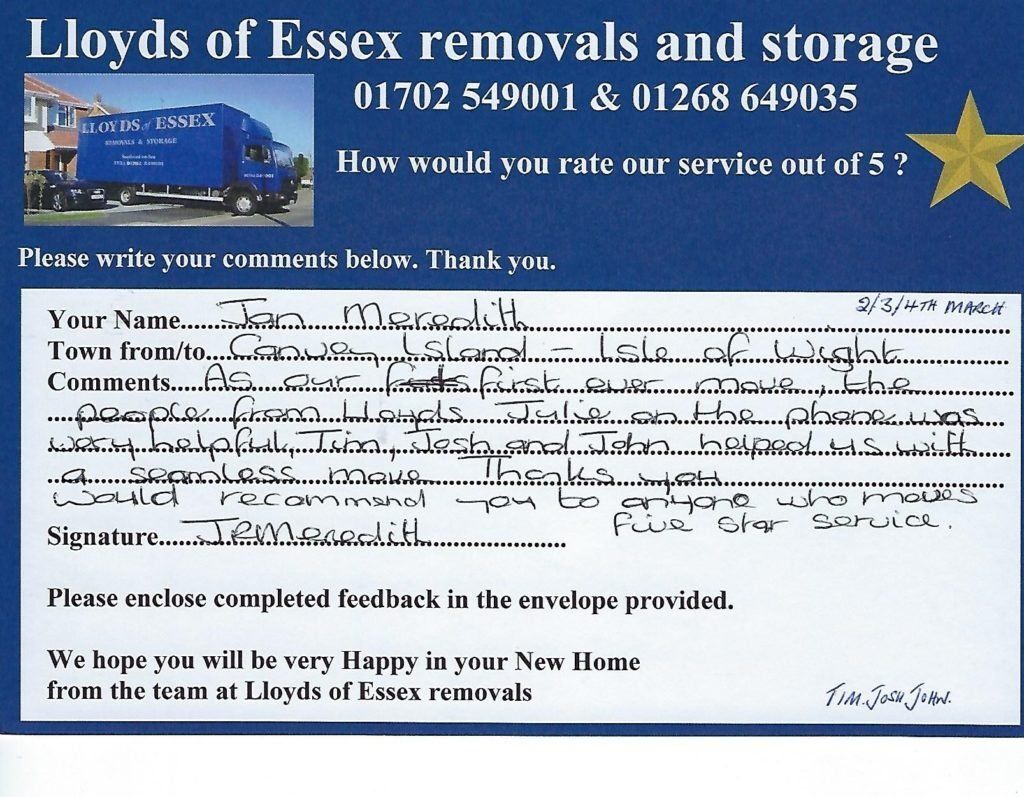 Lloyds of Essex removals and storage
01702 549001 & 01268 649035
LLOYDS of ESSEX
REMOVALS & STORAGE
How would you rate our service out of 5 ?
Please write your comments below. Thank you.
2/3/4TH MARCH
Your Name....Jan Meredith
Town from/to...Canvey Island - Isle of Wight
Comments....As our first ever move, the
people from Lloyds Julie on the phone was
very helpful, Tim, Josh and John helped us with
a seamless move Thanks you
would recommend you to anyone who moves
five star service.
Signature.....JRMeredith
Please enclose completed feedback in the envelope provided.
We hope you will be very Happy in your New Home
from the team at Lloyds of Essex removals
TIM. JOSH JOHN.